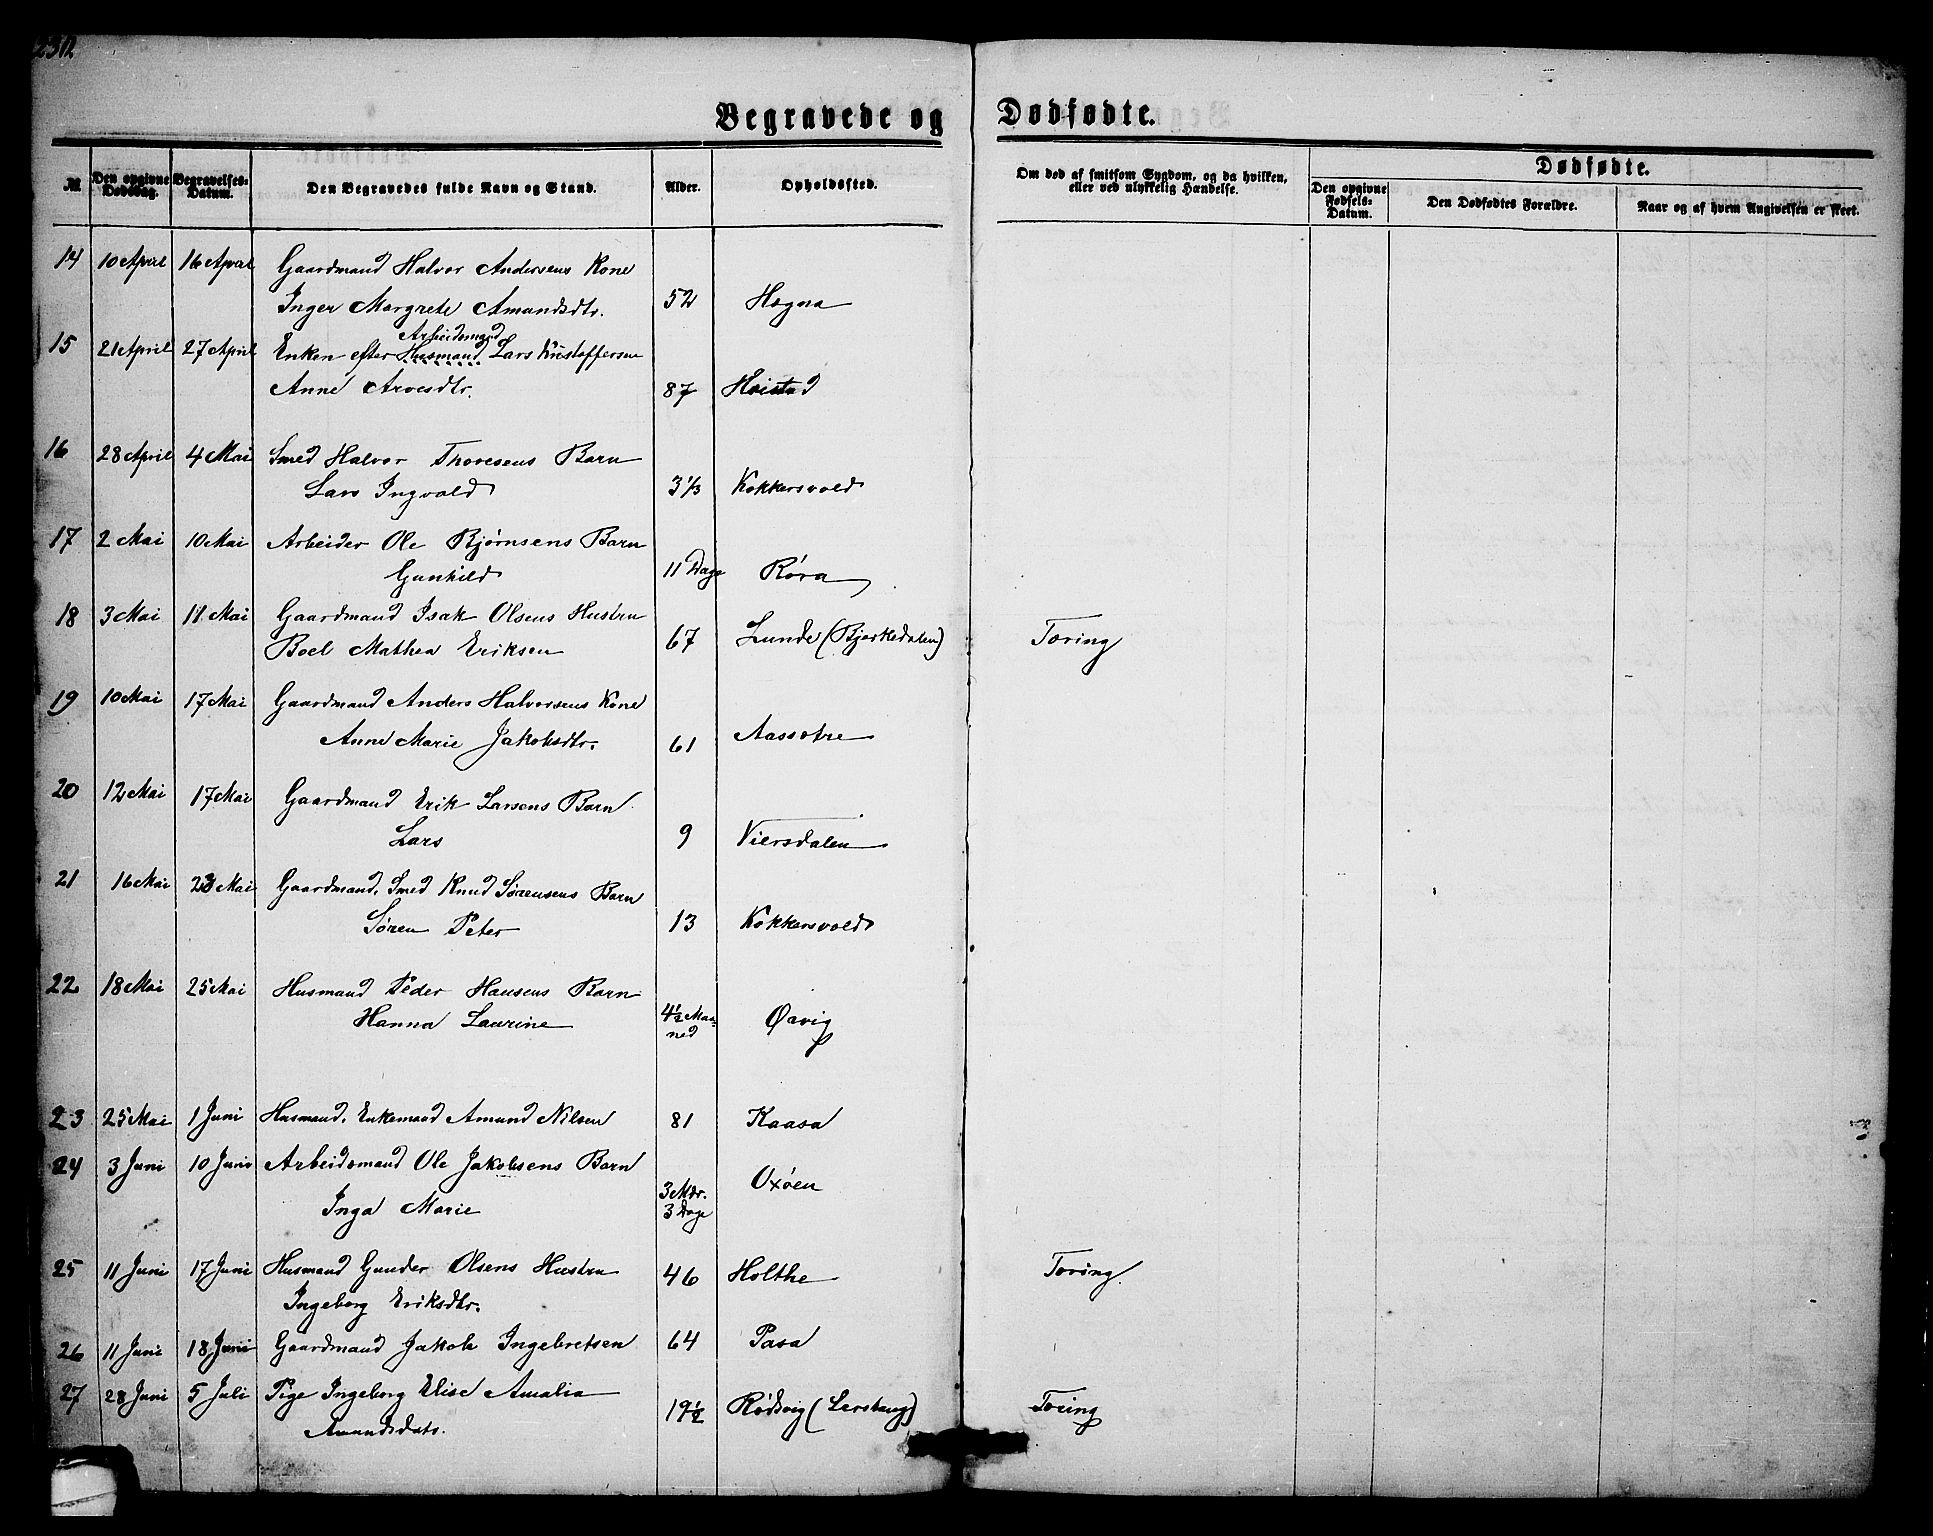 Begravede og Dødfødte.
№ Den opgivne Dødsdag. Begravelses-Datum. Den Begravedes fulde Navn og Stand. Alder. Opholdssted. Om død af smitsom Sygdom, og da hvilken, eller ved ulykkelig Hændelse. Dødfødte.
Den opgivne Fødsels-Datum. Den Dødfødtes Forældre. Naar og af hvem Angivelsen er skeet.
14 10 April 16 April Gaardmand Halvor Andersens Kone
Inger Margrete Amundsdtr. 52 Hogna
Arbeidsmand
15 21 April 27 April Enken efter Husmand Lars Kristoffersen
Anne Arvesdtr. 87 Hoistad
16 28 April 4 Mai Smed Halvor Thoresens Barn
Lars Ingvald 3 1/3 Kokkersvold
17 2 Mai 10 Mai Arbeider Ole Bjørnsens Barn
Gunhild 11 Dage Røra
18 3 Mai 11 Mai Gaardmand Isak Olsens Hustru
Boel Mathea Eriksen 67 Lunde (Bjerkedalen) Tæring
19 10 Mai 17 Mai Gaardmand Anders Halvorsens Kone
Anne Marie Jakobsdtr. 61 Aassotre
20 12 Mai 17 Mai Gaardmand Erik Larsens Barn
Lars 9 Viersdalen
21 16 Mai 23 Mai Gaardmand. Smed Knud Sørensens Barn
Søren Peter 13 Kokkersvold
22 18 Mai 25 Mai Husmand Peder Hansens Barn
Hanna Laurine 4½ Maa-
ned Øavig
23 25 Mai 1 Juni Husmand. Enkemand Amund Nilsen 81 Kaasa
24 3 Juni 10 Juni Arbeidsmand Ole Jakobsens Barn
Inga Marie 3 Mdr.
3 Dage Oxøen
25 11 Juni 17 Juni Husmand Gunder Olsens Hustru
Ingeborg Eriksdtr. 46 Holthe Tæring.
26 11 Juni 18 Juni Gaardmand Jakob Ingebretsen 64 Pasa
27 28 Juni 5 Juli Pige Ingeborg Elise Amalia
Amundsdatr. 19½ Rødsvig (Lerstang) Tæring